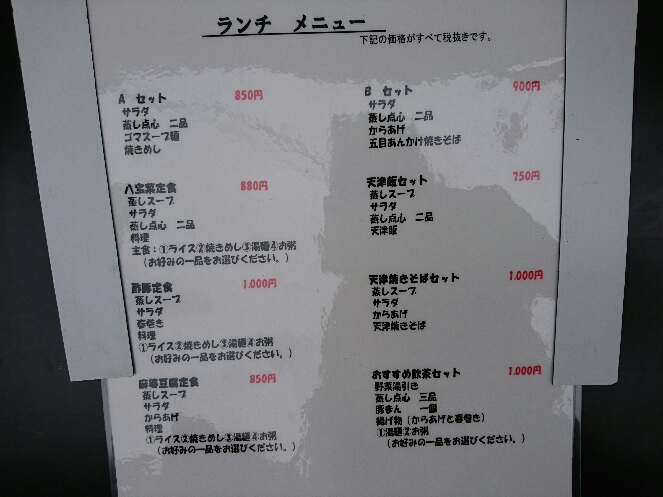 ランチ メニュー
下記の価格がすべて税抜きです。
A セット 850円
サラダ
蒸し点心 二品
ゴマスープ麺
焼きめし
八宝菜定食 880円
蒸しスープ
サラダ
蒸し点心 二品
料理
主食：①ライス②焼きめし③湯麺④お粥
（お好みの一品をお選びください。）
酢豚定食 1.000円
蒸しスープ
サラダ
春巻き
料理
①ライス②焼きめし③湯麺④お粥
（お好みの一品をお選びください。）
麻婆豆腐定食 850円
蒸しスープ
サラダ
からあげ
料理
①ライス②焼きめし③湯麺④お粥
（お好みの一品をお選びください。）
B セット 900円
サラダ
蒸し点心 二品
からあげ
五目あんかけ焼きそば
天津飯セット 750円
蒸しスープ
サラダ
蒸し点心 二品
天津飯
天津焼きそばセット 1.000円
蒸しスープ
サラダ
からあげ
天津焼きそば
おすすめ飲茶セット 1.000円
野菜湯引き
蒸し点心 三品
豚まん 一個
揚げ物（からあげと春巻き）
①湯麺②お粥
（お好みの一品をお選びください。）